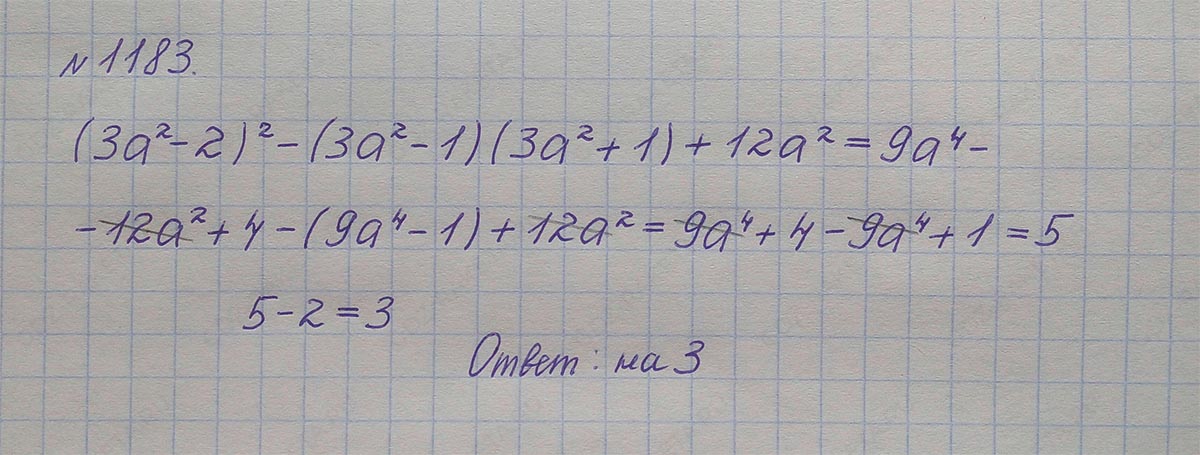 №1183.
(3a²-2)²-(3a²-1)(3a²+1)+12a²=9a⁴-
-12a²+4-(9a⁴-1)+12a²=9a⁴+4-9a⁴+1=5
5-2=3
Ответ: на 3